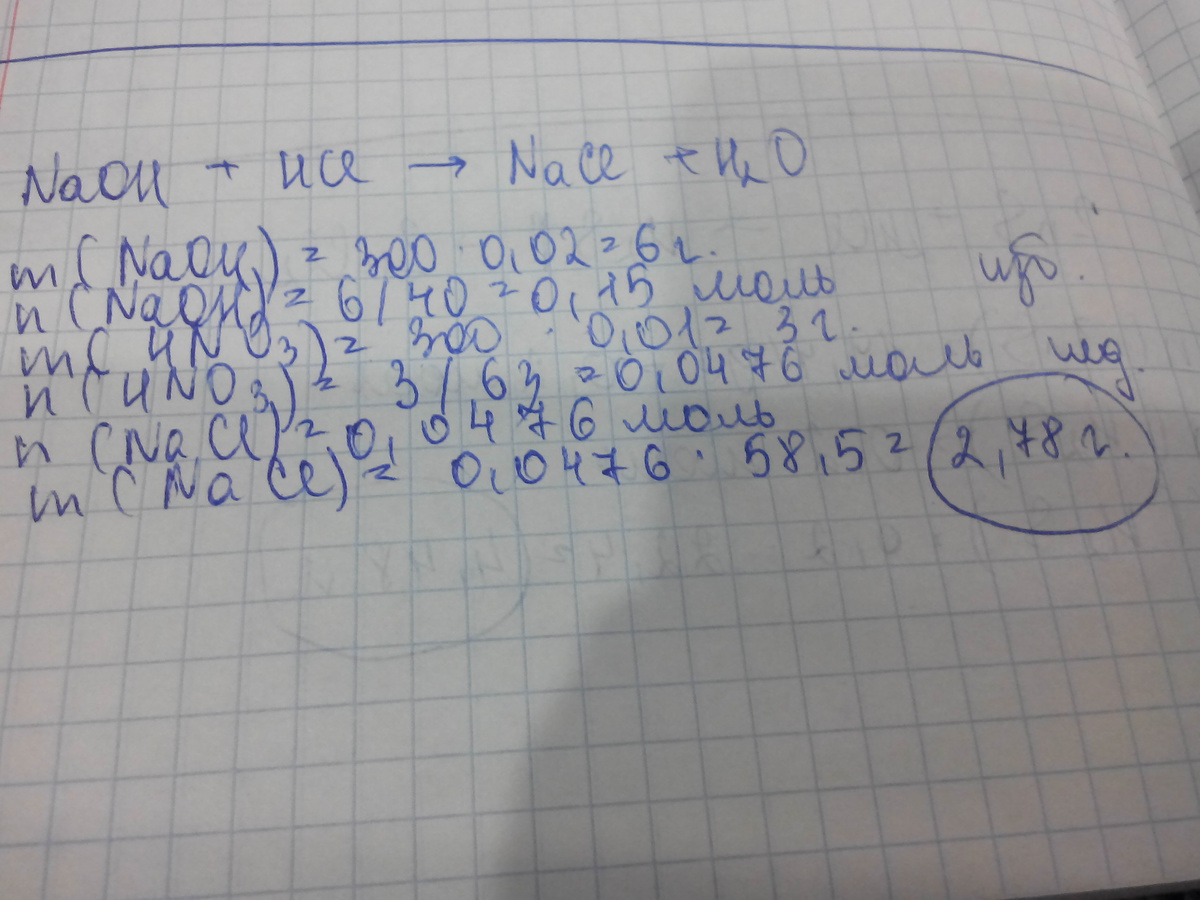 NaOH + HCl → NaCl + H₂O
m(NaOH) = 300 · 0,02 = 6 г.
n(NaOH) = 6/40 = 0,15 моль изб.
m(HNO₃) = 300 · 0,01 = 3 г.
n(HNO₃) = 3/63 = 0,0476 моль нед.
n(NaCl) = 0,0476 моль
m(NaCl) = 0,0476 · 58,5 = 2,78 г.